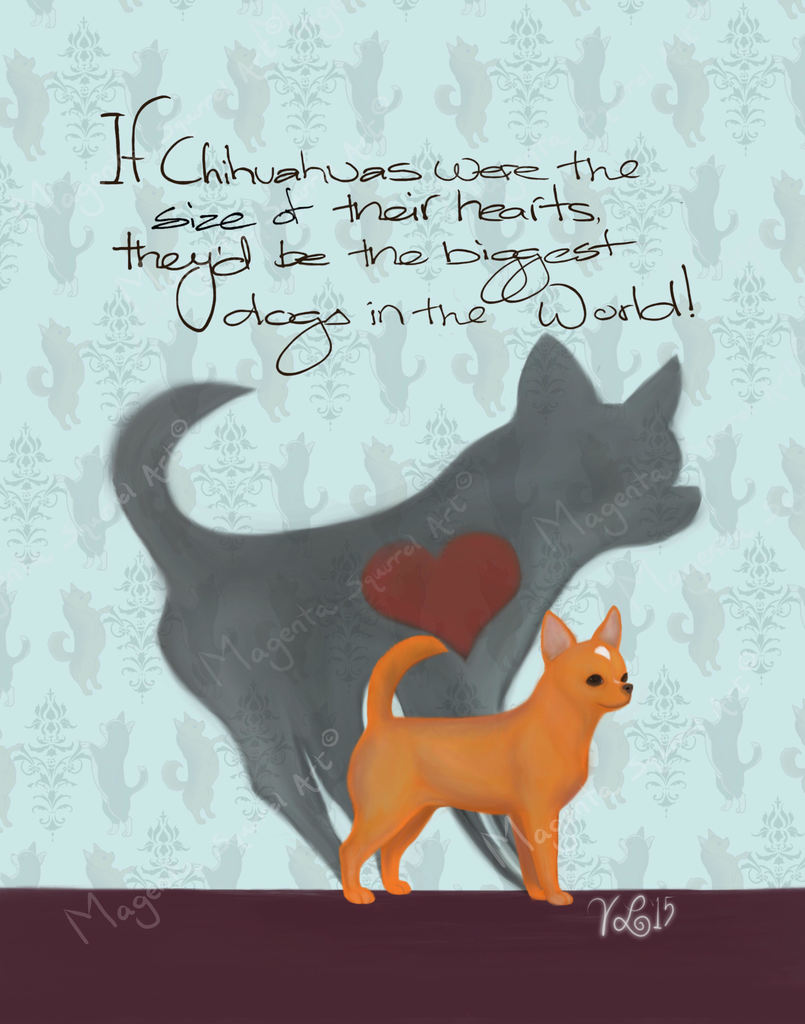 If Chihuahuas were the
size of their hearts,
they'd be the biggest
dogs in the World!
Magenta Squirrel Art ©
Magenta Squirrel Art ©
Magenta Squirrel Art ©
VL '15